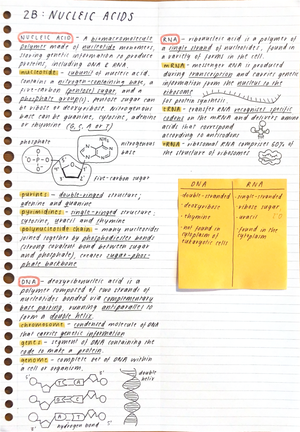 2B: NUCLEIC ACIDS
NUCLEIC ACID - a biomacromolecule
polymer made of nucleotide monomers,
storing genetic information to produce
proteins, including DNA & RNA.
nucleotide - subunit of nucleic acid.
Contains a nitrogen-containing base, a
five-carbon (pentose) sugar, and a
phosphate group(s). Pentose sugar can
be ribose or deoxyribose. Nitrogenous
base can be guanine, cytosine, adenine
or thymine (G, C, A or T)
phosphate
nitrogenous
base
five-carbon sugar
purines - double-ringed structure;
adenine and guanine
pyrimidines - single-ringed structure;
cytosine, uracil and thymine
polynucleotide chain - many nucleotides
joined together by phosphodiester bonds
(strong covalent bond between sugar
and phosphate), creates sugar-phos-
phate backbone
DNA - deoxyribonucleic acid is a
polymer composed of two strands of
nucleotides bonded via complementary
base pairing, running antiparallel to
form a double helix.
chromosome - condensed molecule of DNA
that carries genetic information
genes - segment of DNA containing the
code to make a protein
genome - complete set of DNA within
a cell or organism.
T A
G C
A T
hydrogen bond
double
helix
RNA - ribonucleic acid is a polymer of
a single strand of nucleotides, found in
a variety of forms in the cell.
mRNA - messenger RNA is produced
during transcription and carries genetic
information from the nucleus to the
ribosomes
for protein synthesis
tRNA - transfer RNA recognises specific
codons on the mRNA and delivers amino
acids that correspond
according to anticodons
rRNA - ribosomal RNA comprises 60% of
the structure of ribosomes
DNA RNA
- double-stranded - single-stranded
- deoxyribose - ribose sugar
- thymine - uracil
- not found in - found in the
cytoplasm of cytoplasm
eukaryotic cells